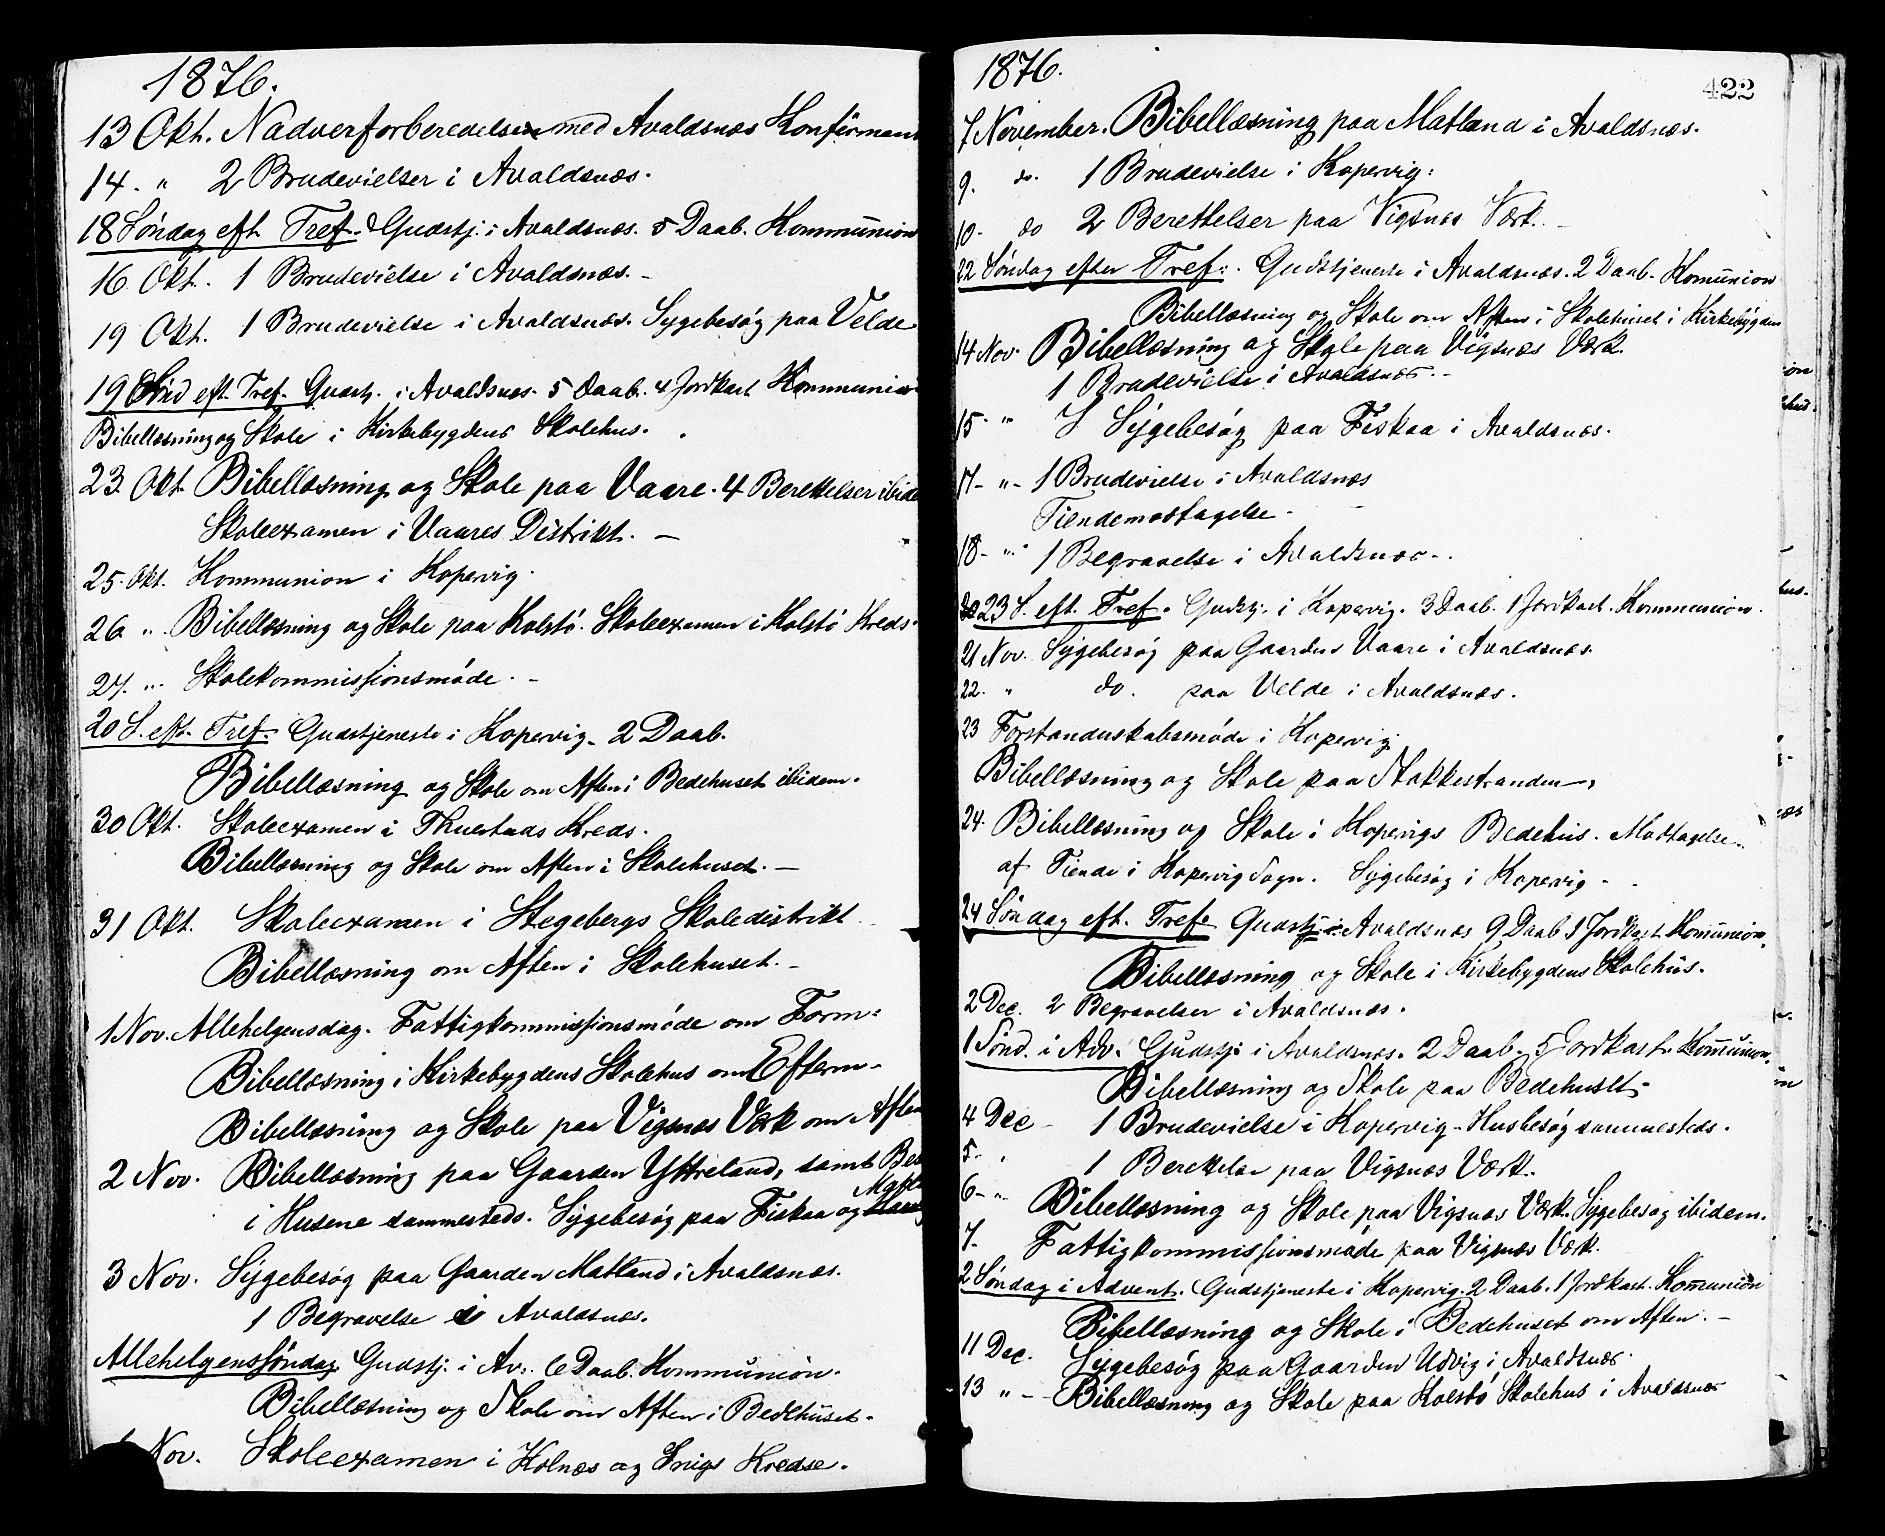 1876.
13 Okt. Nadverforberedelse med Avaldsnæs Konfirman
14. " 2 Brudevielser i Avaldsnæs.
18 Søndag eft. Tref. Gudstj. i Avaldsnæs. 5 Daab. Kommunion
16. Okt. 1 Brudevielse i Avaldsnæs. -
19 Okt. 1 Brudevielse i Avaldsnæs. Sygebesøg paa Velde
19 Sønd eft. Tref. Gudstj. i Avaldsnæs. 5 Daab. 4 Jordkast Kommunion
Bibellæsning og Skole i Kirkebygdens Skolehus.
23. Okt. Bibellæsning og Skole paa Vaare. 4 Berettelser ibide
Skoleexamen i Vaares Distrikt. -
25. Okt. Kommunion i Kopervig.
26 " Bibellæsning og Skole paa Kolstø. Skoleexamen i Kolstø Kreds.
27. " Skolekommissionsmøde. -
20 S. eft. Tref. Gudstjeneste i Kopervig. 2 Daab.
Bibellæsning og Skole om Aften i Bedehuset ibidem.
30 Okt. Skoleexamen i Kreds.
Bibellæsning og Skole om Aften i Skolehuset. -
31 Okt. Skoleexamen i Stegebergs Skoledistrikt
Bibellæsning om Aften i Skolehuset. -
1 Nov. Allehelgensdag. Fattigkommissionsmøde om Form:
Bibellæsning i Kirkebygdens Skolehus om Efterm-
Bibellæsning og Skole paa Vigsnæs Værk om Aften
2 Nov. Bibellæsning paa Gaarden Yttreland, samt Bes
i Husene sammesteds. Sygebesøg paa Fiskaa og
3 Nov. Sygebesøg paa Gaarden Matland i Avaldsnæs.
1 Begravelse i Avaldsnæs.
Allehelgenssøndag Gudstj. i Av. 6 Daab. Kommunion.
Bibellæsning og Skole om Aften i Bedehuset.
Nov. Skoleexamen i Kolnæs og Snigs Kredse.
1876.
422
7 November. Bibellæsning paa Matland i Avaldsnæs.
9. do. 1 Brudevielse i Kopervig.
10. do 2 Berettelser paa Vigsnæs Værk. -
22 Søndag efter Tref. Gudstjeneste i Avaldsnæs. 2 Daab. Komunion
Bibellæsning og Skole om Aften i Skolehuset i Kirkebygden
14 Nov. Bibellæsning og Skole paa Vigsnæs Værk.
1 Brudevielse i Avaldsnæs. -
15. " Sygebesøg paa Fiskaa i Avaldsnæs.
17 - " - 1 Brudevielse i Avaldsnæs
Tiendemodtagelse -
18 - " 1 Begravelse i Avaldsnæs - .
23 S. eft. Tref. Gudstj. i Kopervig. 3 Daab. 1 Jordkast. Kommunion.
21 Nov. Sygebesøg paa Gaarden Vaare i Avaldsnæs.
22. " do. paa Velde i Avaldsnæs.
23 Forstanderskabsmøde i Kopervig.
Bibellæsning og Skole paa Stokkestranden.
24. Bibellæsning og Skole i Kopervigs Bedehus. Modtagelse
af Tiende i Kopervig Sogn. Sygebesøg i Kopervig -
24 Søndag eft. Tref. Gudstj. i Avaldsnæs 9 Daab 1 Jordkast Komunion.
Bibellæsning og Skole i Kirkebygdens Skolehus.
2 Dec. 2 Begravelser i Avaldsnæs.
1 Sønd. i Adv. Gudstj. i Avaldsnæs. 2 Daab. 5 Jordkast. Komunion.
Bibellæsning og Skole paa Bedehuset.
4 Dec - 1 Brudevielse i Kopervig. Husbesøg sammesteds.
5. 1 Berettelse paa Vigsnæs Værk.
6 - " Bibellæsning og Skole paa Vigsnæs Værk. Sygebesøg ibidem.
7. Fattigkommissionsmøde paa Vigsnæs Værk.
2 Søndag i Advent. Gudstjeneste i Kopervig. 2 Daab. 1 Jordkast. Komunion
Bibellæsning og Skole i Bedehuset om Aften. -
11 Dec. Sygebesøg paa Gaarden Udvig i Avaldsnæs.
13 " - Bibellæsning og Skole paa Kolstø Skolehus i Avaldsnæs